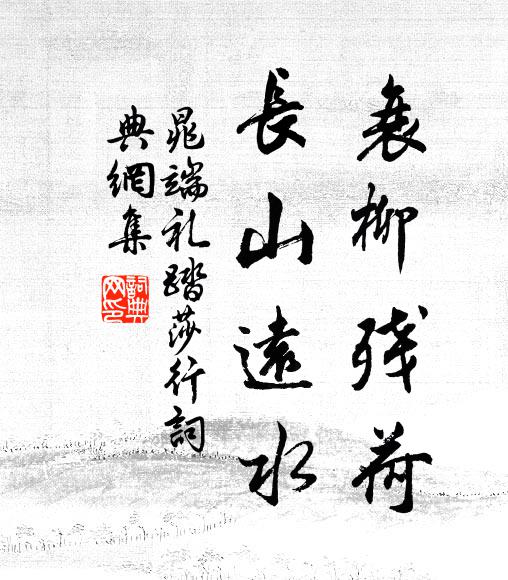 衰柳残荷
長山遠水
晁端礼踏莎行詞
典網集
詞典网印